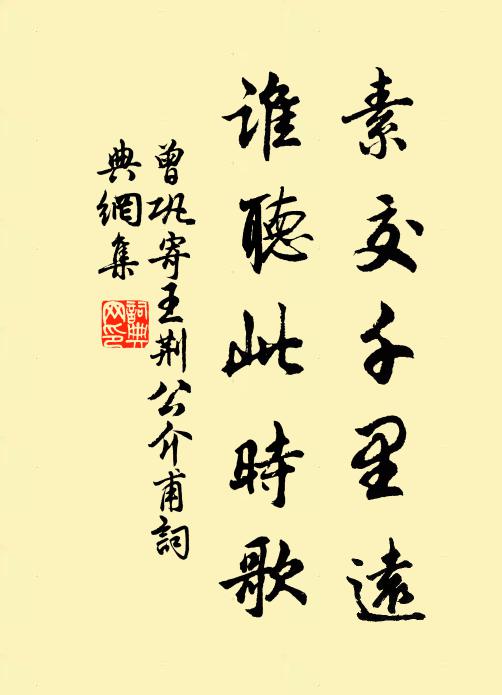 素交千里遠
誰聽此時歌
曾鞏寄王荆公介甫詞
典網集
詞典网印